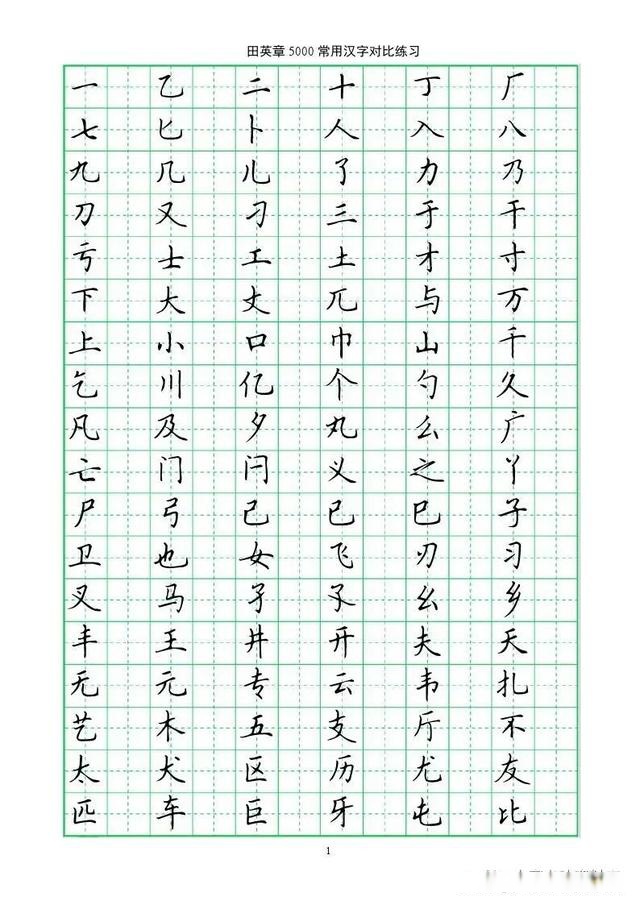 田英章 5000 常用汉字对比练习
一 乙 二 十 丁 厂
七 匕 卜 人 入 八
九 几 儿 了 力 乃
刀 又 刁 三 于 干
亏 士 工 土 才 寸
下 大 丈 兀 与 万
上 小 口 巾 山 千
乞 川 亿 个 勺 久
凡 及 夕 丸 么 广
亡 门 闩 义 之 丫
尸 弓 己 已 巳 子
卫 也 女 飞 刃 习
叉 马 孑 孓 幺 乡
丰 王 井 开 夫 天
无 元 专 云 韦 扎
艺 木 五 支 厅 不
太 犬 区 历 尤 友
匹 车 巨 牙 屯 比
1